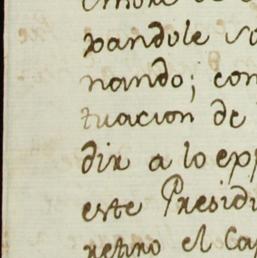 pandole so
nando; con
tuacion de
dir a lo exp
este Presidi
retiro el Cap